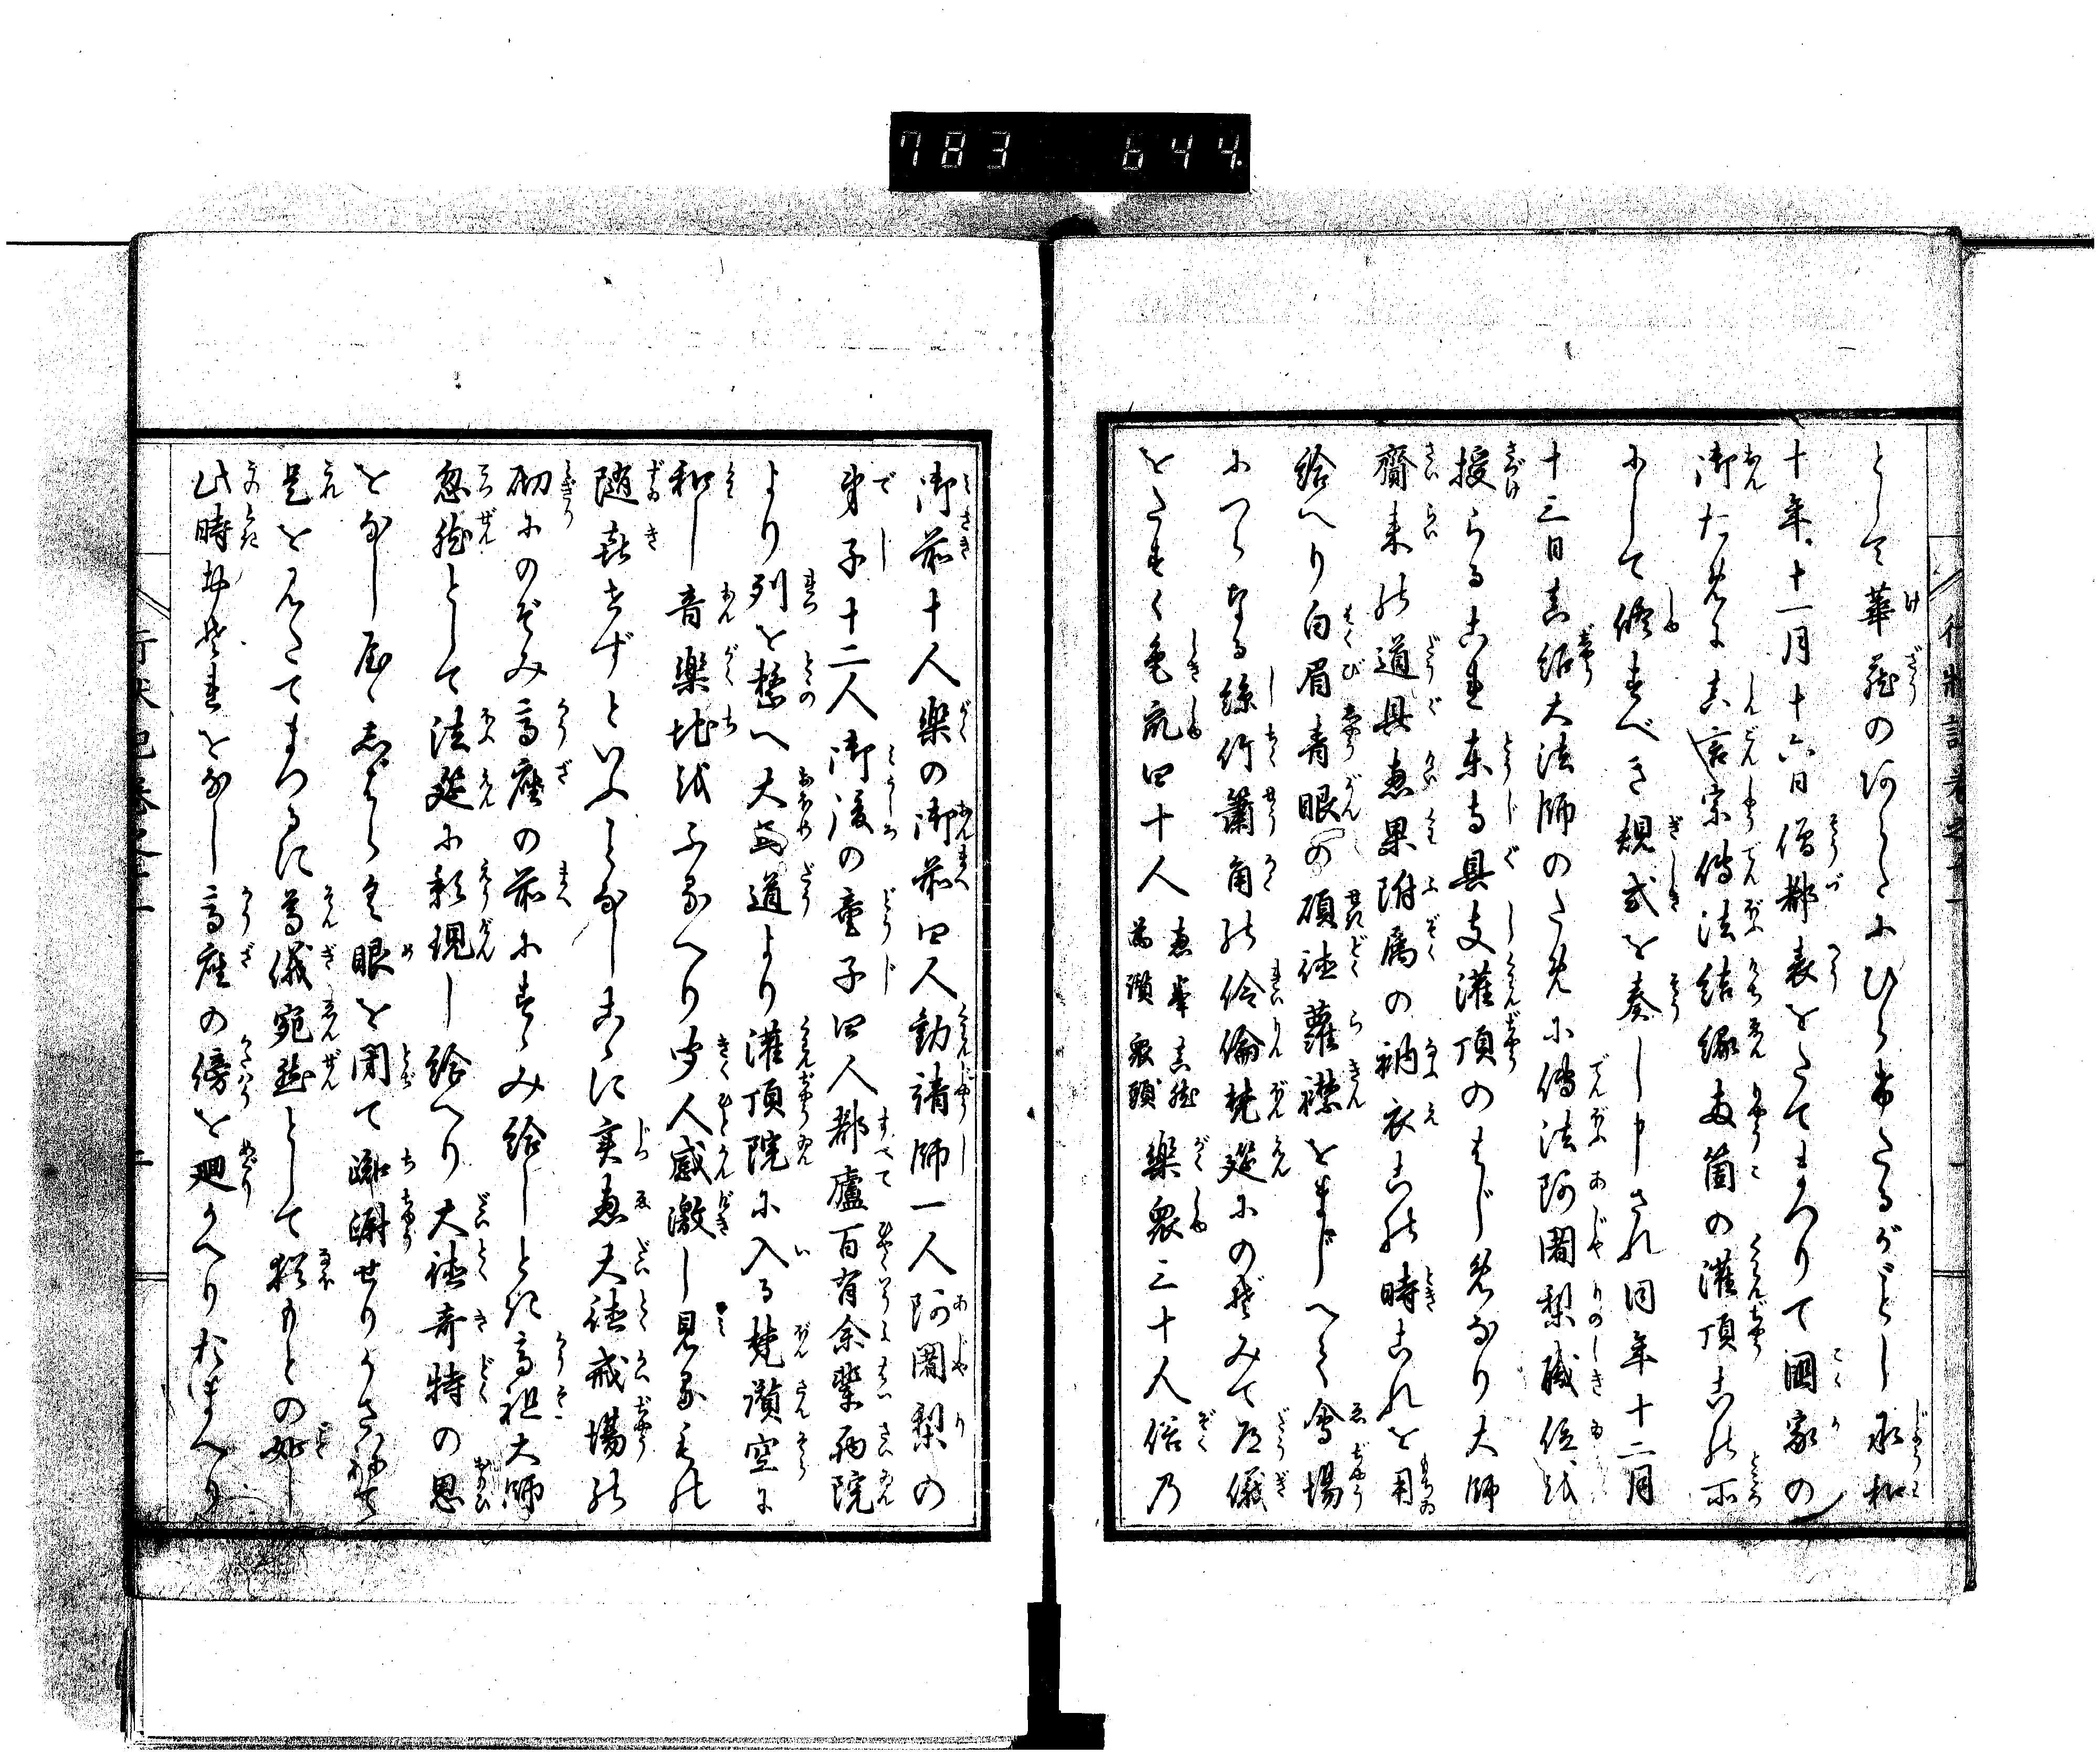 783 644
として華蔵のあらたにひらけたるがごとし承和
十年十一月十六日僧都表をたてまつりて國家の
御ために真言宗傳法結縁両箇の灌頂真の所
にして修すべき規式を奏し申され同年十二月
十三日真紹大法師のために傳法阿闍梨職位を
授らるこれ東寺具支灌頂のはじめなり大師
齎来の道具恵果附属の衲衣この時これを用
給へり白眉青眼の碩徳蘿襟をまじへて會場
につらなる絲竹簫角の伶倫梵筵にのぞみて庄儀
をたすく色衆四十人 樂衆三十人俗乃
御前十人樂の御前四人勧請師一人阿闍梨の
弟子十二人御後の童子四人都盧百有余輩両院
より列を整へ大道より灌頂院に入る梵讃空に
和し音樂地をふるへり聞人感激し見るもの
随喜せずといふことなしこゝに実恵大徳戒場の
砌にのぞみ高座の前にすゝみ給しとき高祖大師
忽然として法筵に影現し給へり大徳奇特の思
をなししばらく眼を閉て踟蹰せりかさねて
是をみたてまつるに尊儀宛然として猶もとの如し
此時 をなし高座の傍を廻かへりたまへり